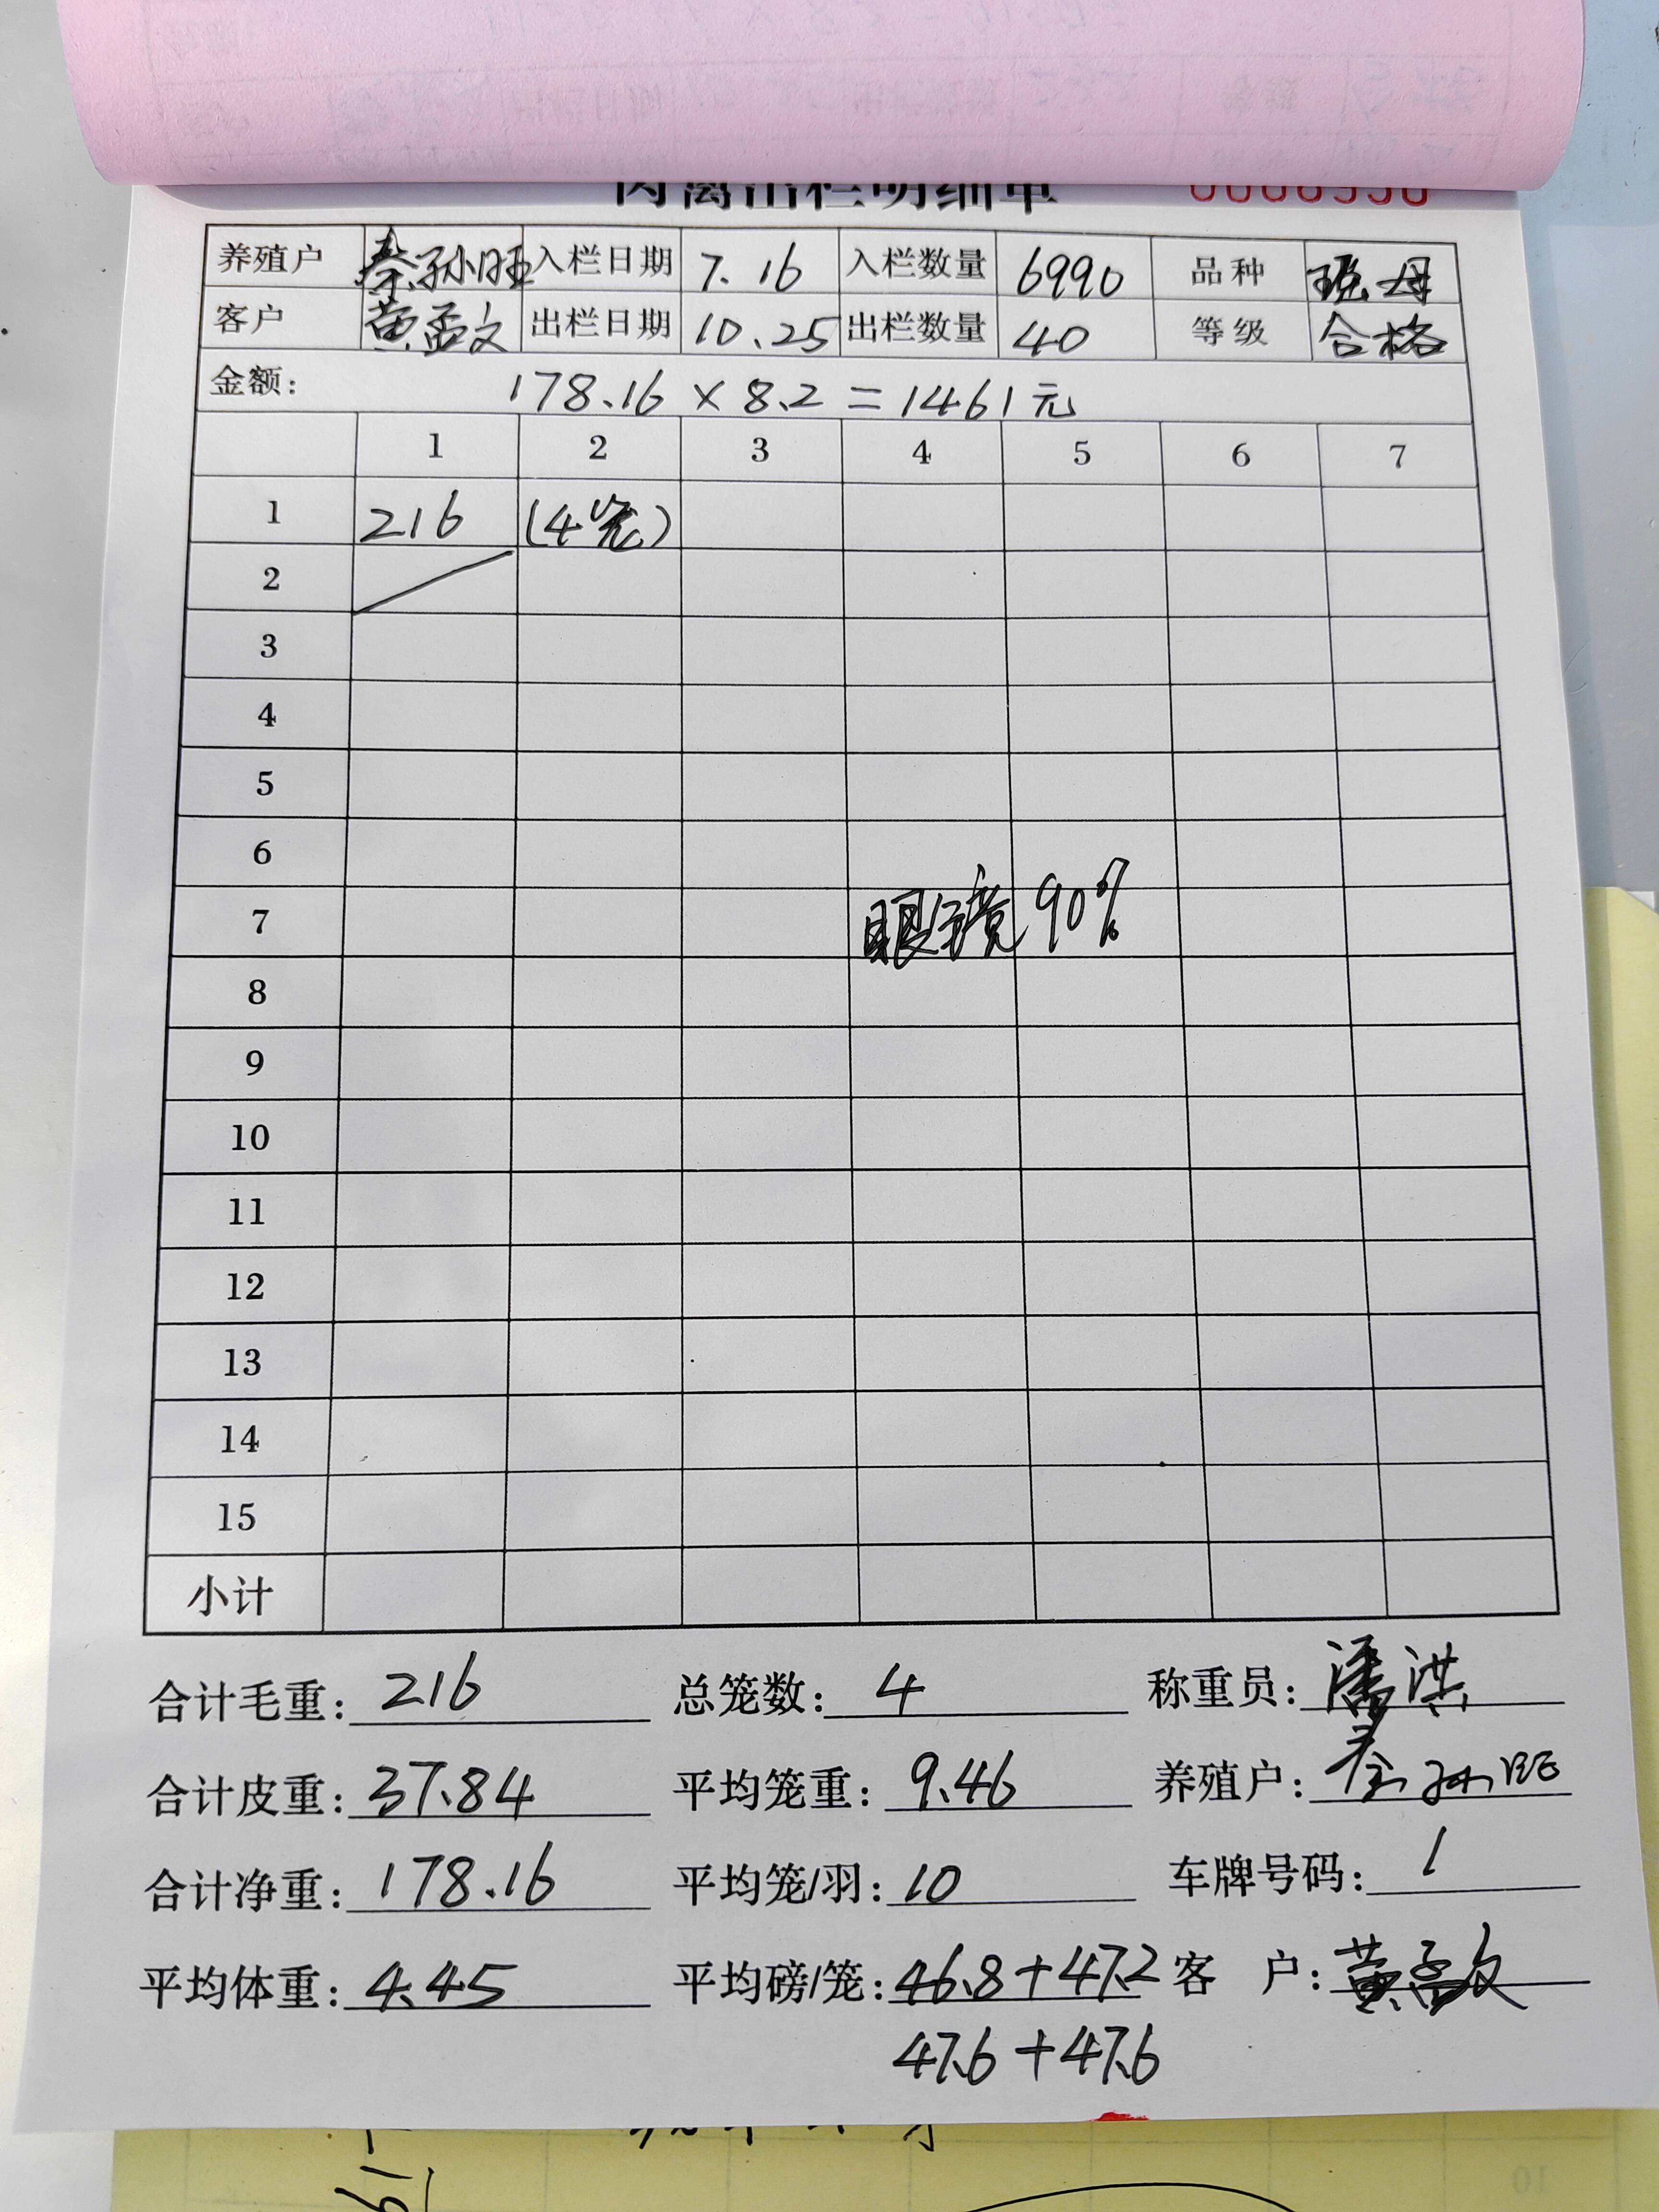 肉禽出栏明细单
养殖户 秦孙旺 入栏日期 7.16 入栏数量 6990 品种 班母
客户 黄孟文 出栏日期 10.25 出栏数量 40 等级 合格
金额: 178.16 × 8.2 = 1461元
1 2 3 4 5 6 7
1 216 (4笼)
2
3
4
5
6
7 眼镜 90%
8
9
10
11
12
13
14
15
小计
合计毛重: 216 总笼数: 4 称重员: 潘洪
合计皮重: 37.84 平均笼重: 9.46 养殖户: 秦孙旺
合计净重: 178.16 平均笼/羽: 10 车牌号码: 1
平均体重: 4.45 平均磅/笼: 46.8+47.2 客 户: 黄孟文
47.6+47.6